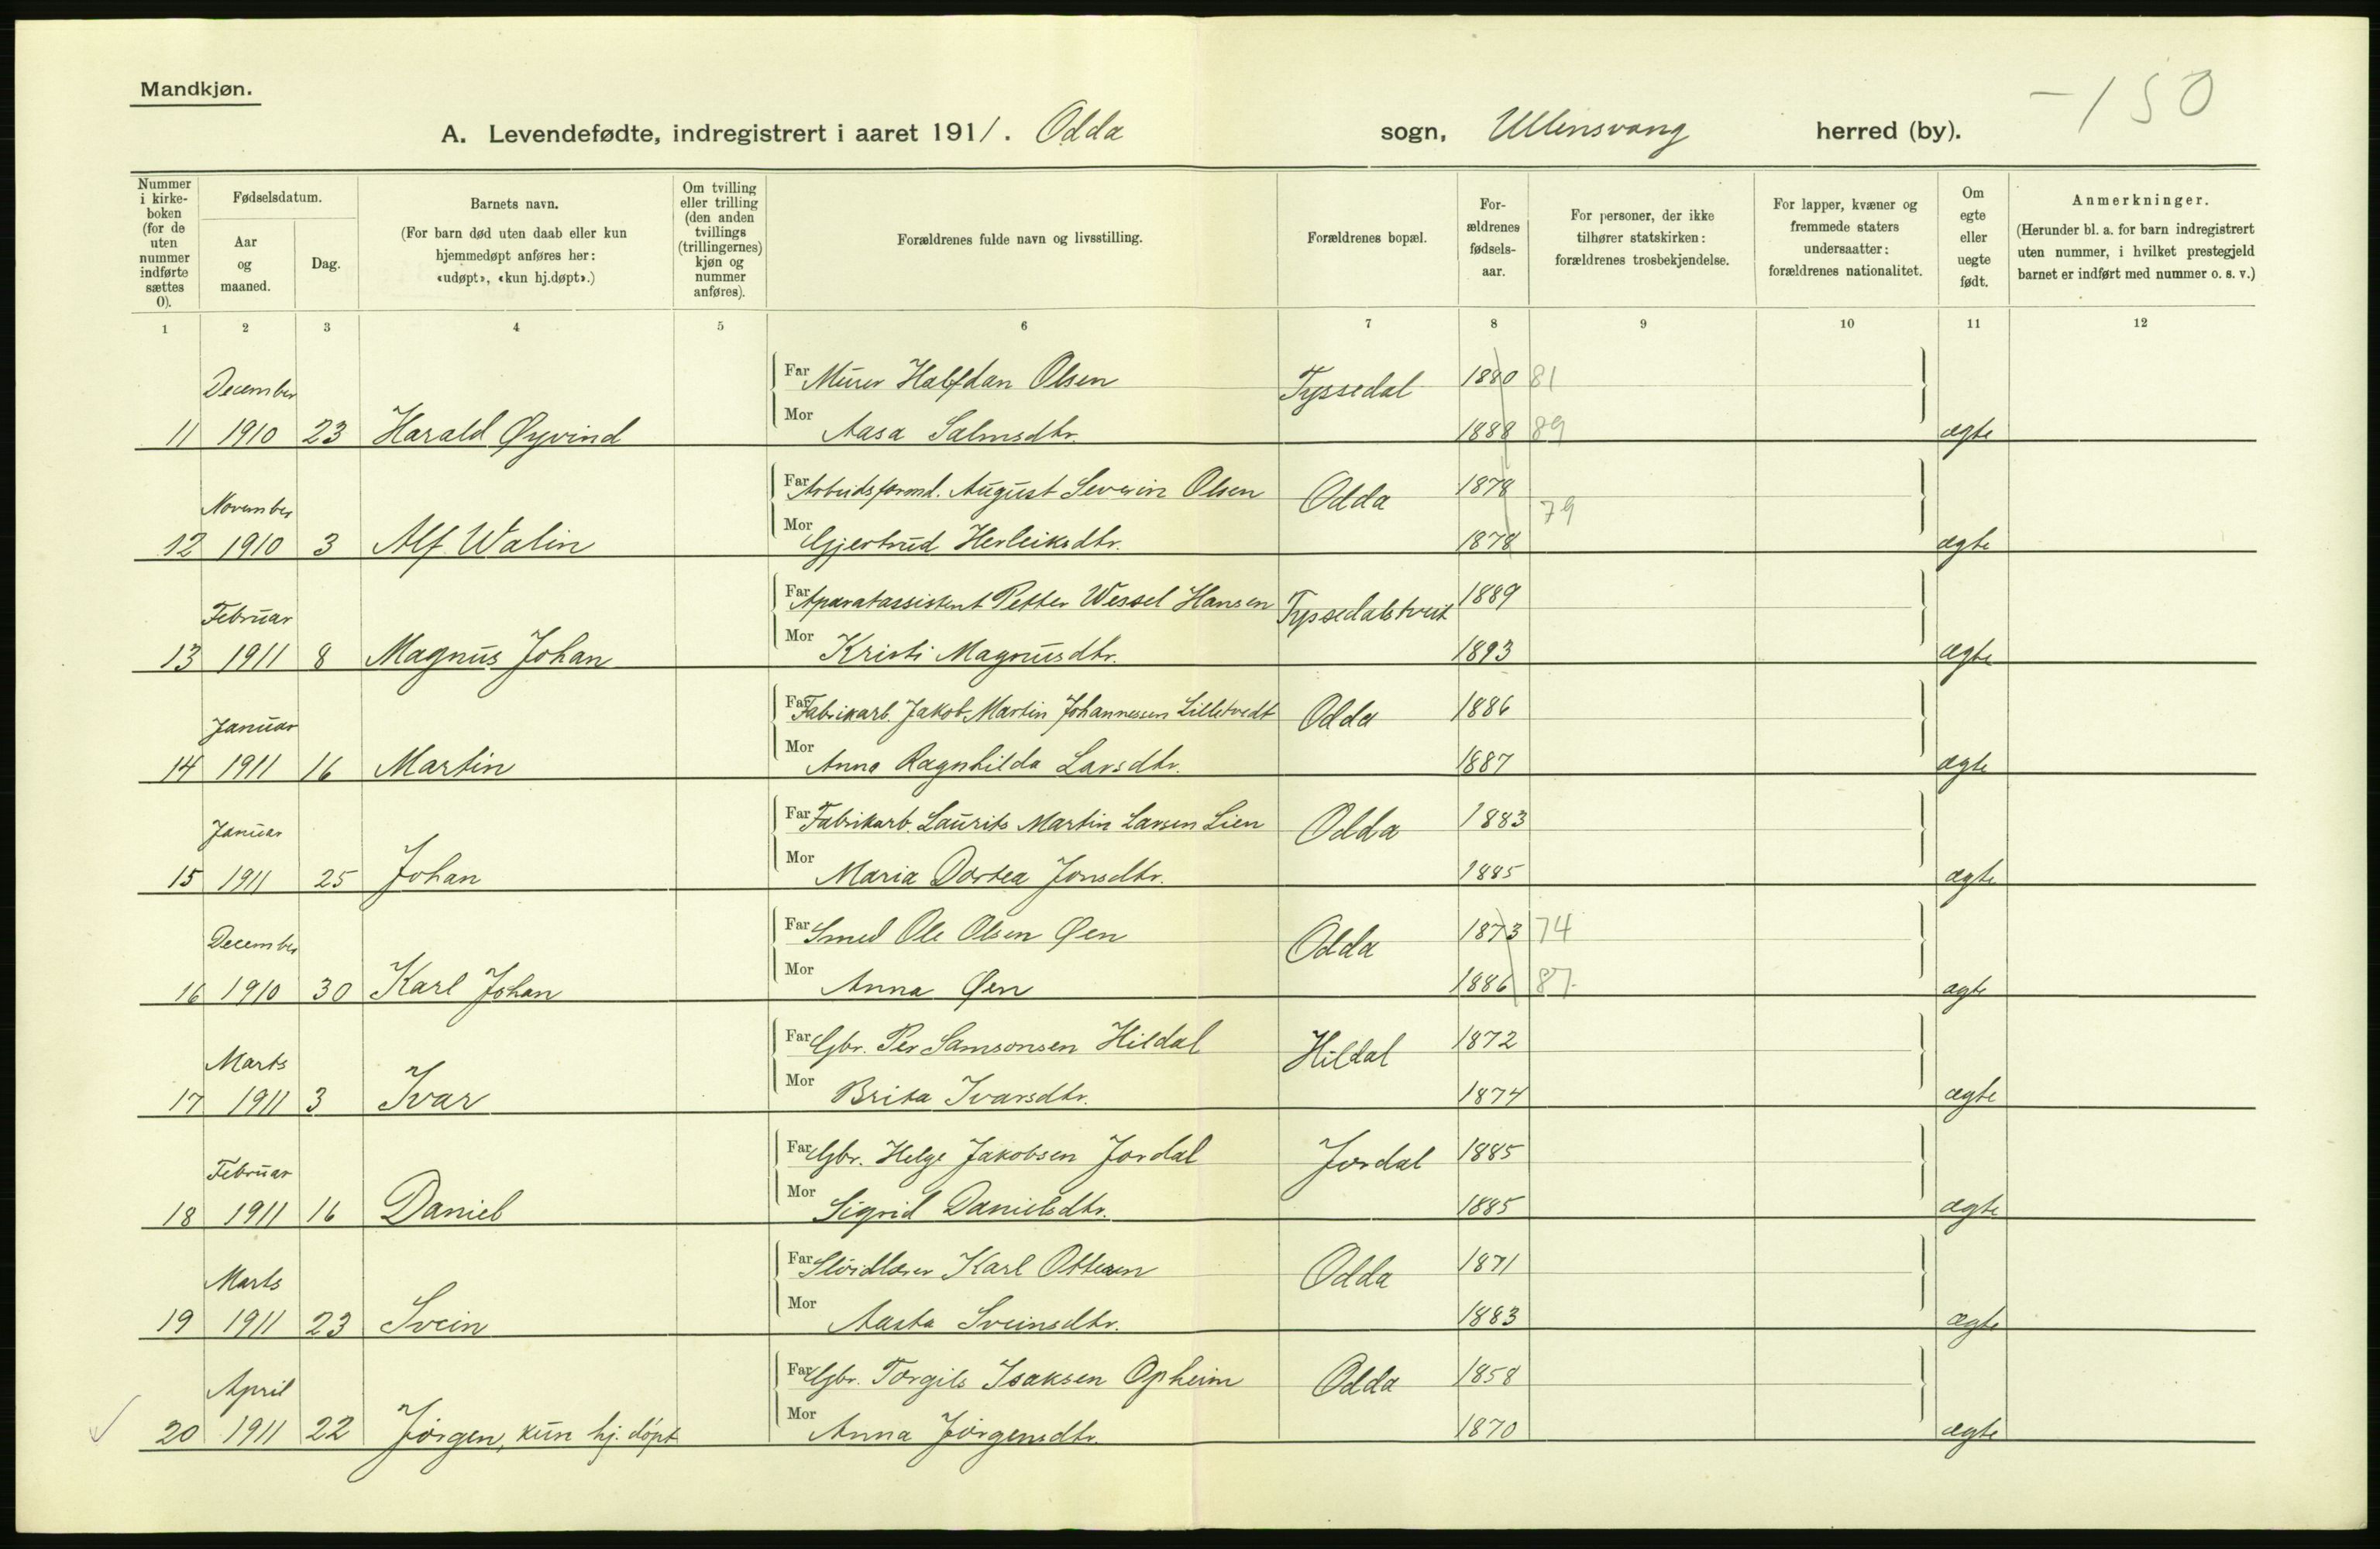 Mandkjøn.
-150
A. Levendefødte, indregistrert i aaret 1911. Odda sogn, Ullensvang herred (by).
Nummer i kirke- boken (for de uten nummer indførte sættes 0).
Fødselsdatum.
Aar og maaned.
Dag.
Barnets navn.
(For barn død uten daab eller kun hjemmedøpt anføres her: «udøpt», «kun hj.døpt».)
Om tvilling eller trilling (den anden tvillings (trillingernes) kjøn og nummer anføres).
Forældrenes fulde navn og livsstilling.
Forældrenes bopæl.
For- ældrenes fødsels- aar.
For personer, der ikke tilhører statskirken: forældrenes trosbekjendelse.
For lapper, kvæner og fremmede staters undersaatter: forældrenes nationalitet.
Om egte eller uegte født.
Anmerkninger.
(Herunder bl. a. for barn indregistrert uten nummer, i hvilket prestegjeld barnet er indført med nummer o. s. v.)
1 2 3 4 5 6 7 8 9 10 11 12
December Far Murer Halfdan Olsen Tyssedal 1880 81
11 1910 23 Harald Øyvind Mor Aasa Salmsdtr. 1888 89 ægte
November Far Arbeidsformd. August Severin Olsen Odda 1878
12 1910 3 Alf Walin Mor Gjertrud Herleiksdtr. 1878 79 ægte
Februar Far Aparatassistent Petter Wessel Hansen Tyssedalstveit 1889
13 1911 8 Magnus Johan Mor Kristi Magnusdtr. 1893 ægte
Januar Far Fabrikarb. Jakob Martin Johannessen Lilletvedt Odda 1886
14 1911 16 Martin Mor Anna Ragnhilda Larsdtr. 1887 ægte
Januar Far Fabrikarb. Laurits Martin Larsen Lien Odda 1883
15 1911 25 Johan Mor Maria Dortea Jonsdtr. 1885 ægte
December Far Smed Ole Olsen Øen Odda 1873 74
16 1910 30 Karl Johan Mor Anna Øen 1886 87 ægte
Marts Far Gbr. Per Samsonsen Hildal Hildal 1872
17 1911 3 Ivar Mor Brita Ivarsdtr. 1874 ægte
Februar Far Gbr. Helge Jakobsen Jordal Jordal 1885
18 1911 16 Daniel Mor Sigrid Danielsdtr. 1885 ægte
Marts Far Sløidlærer Karl Ottesen Odda 1871
19 1911 23 Svein Mor Aasta Sveinsdtr. 1883 ægte
April Far Gbr. Torgils Isaksen Opheim Odda 1858
20 1911 22 Jørgen, kun hj. døpt Mor Anna Jørgensdtr. 1870 ægte